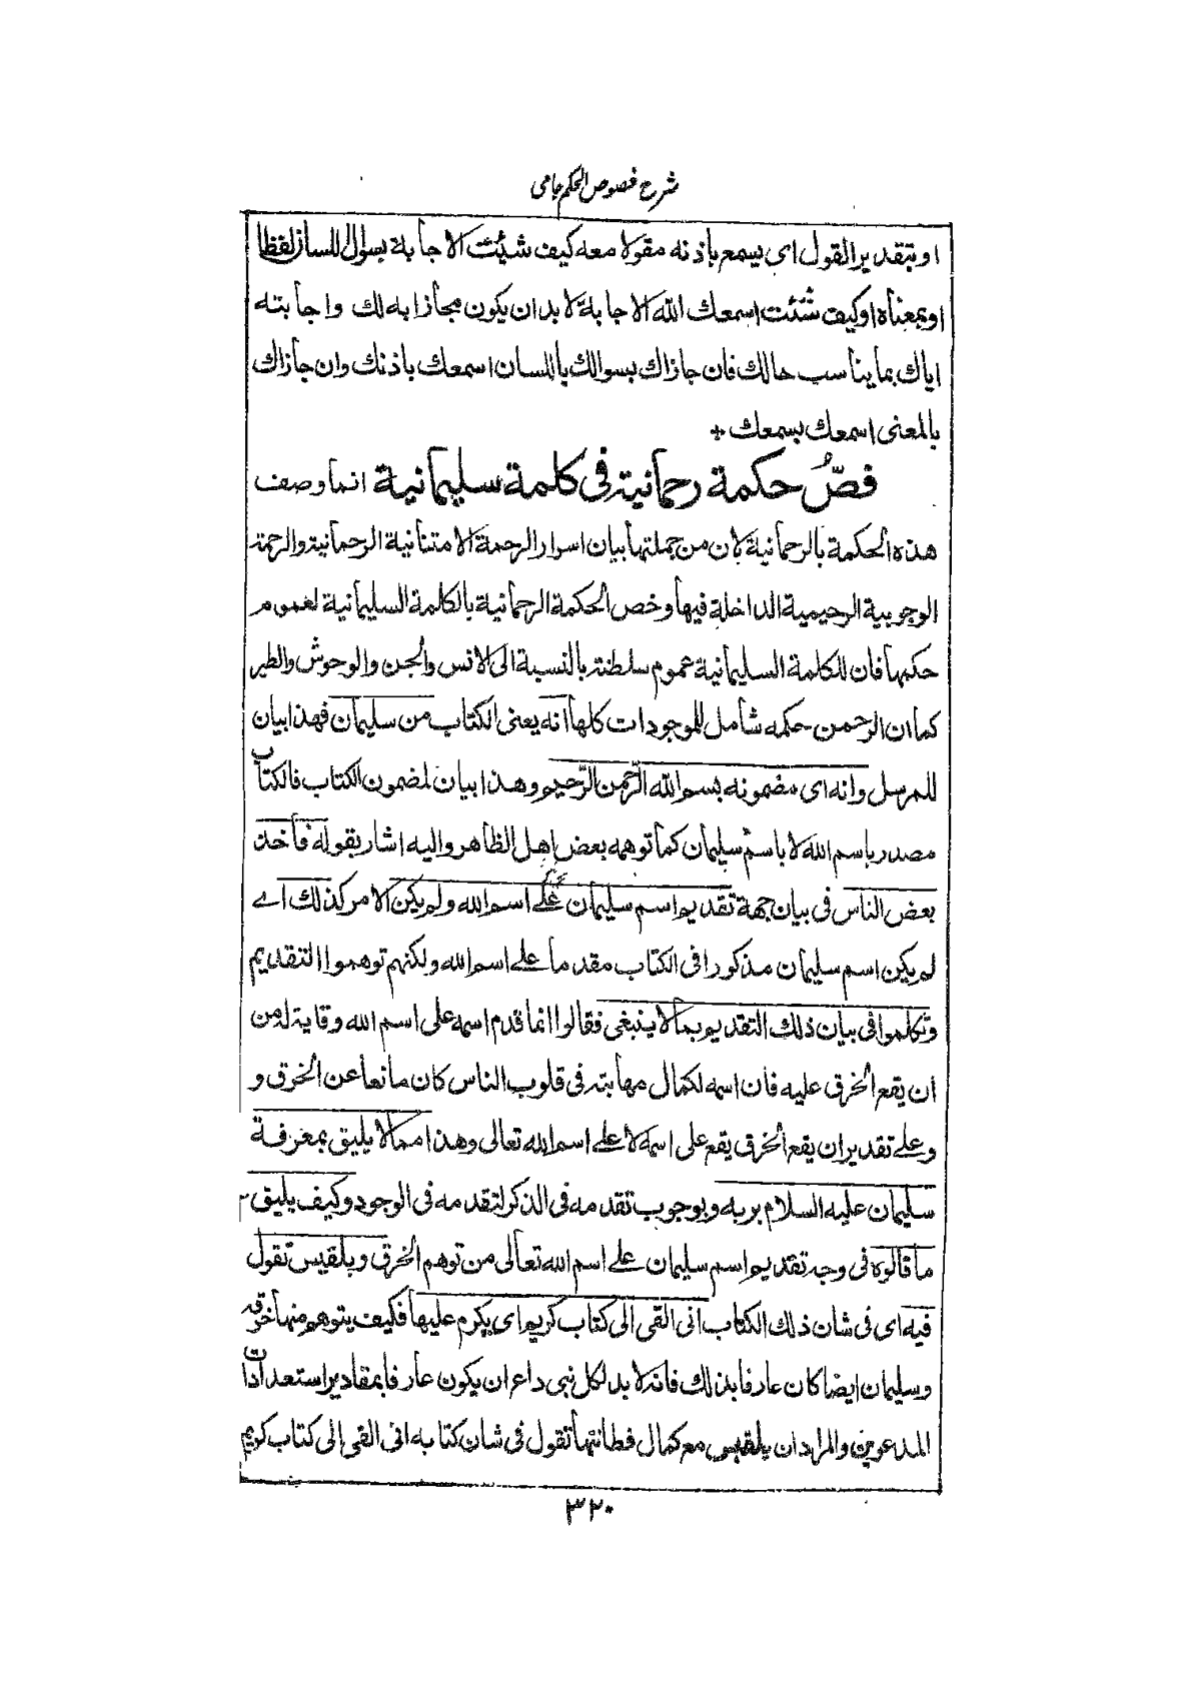 شرح فصوص الحكم جامى
او بتقدير القول اى يسمع باذنه مقولا معه كيف شئت الاجابة بسوال اللسان لفظا
او بمعناه او كيف شئت اسمعك الله الاجابة لابد ان يكون مجازا به لك واجابته
اياك بما يناسب حالك فان جازاك بسوالك باللسان اسمعك باذنك وان جازاك
بالمعنى اسمعك بسمعك +
فصّ حكمة رحمانية فى كلمة سليمانية انما وصف
هذه الحكمة بالرحمانية لان من جملتها بيان اسرار الرحمة الامتنانية الرحمانية والرحمة
الوجوبية الرحيمية الداخلة فيها وخص الحكمة الرحمانية بالكلمة السليمانية لعموم
حكمها فان للكلمة السليمانية عموم سلطنة بالنسبة الى الانس والجن والوحوش والطير
كما ان الرحمن حكمه شامل للموجودات كلها انه يعنى الكتاب من سليمان فهذا بيان
للمرسل وانه اى مضمونه بسم الله الرّحمن الرّحيم وهذا بيان لمضمون الكتاب فالكتاب
مصدر باسم الله لا باسم سليمان كما توهمه بعض اهل الظاهر واليه اشار بقوله فأخذ
بعض الناس فى بيان جهة تقديم اسم سليمان على اسم الله ولم يكن الامر كذلك اے
لم يكن اسم سليمان مذكورا فى الكتاب مقدما على اسم الله ولكنهم توهموا التقديم
وتكلموا فى بيان ذلك التقديم بما لا ينبغى فقالوا انما قدم اسمه على اسم الله وقاية له من
ان يقع الخرق عليه فان اسمه لكمال مهابته فى قلوب الناس كان مانعا عن الخرق و
وعلى تقدير ان يقع الخرق يقع على اسمه لا على اسم الله تعالى وهذا مما لا يليق بمعرفة
سليمان عليه السلام بربه وبوجوب تقدمه فى الذكر لتقدمه فى الوجود وكيف يليق
ما قالوه فى وجه تقديم اسم سليمان على اسم الله تعالى من توهم الخرق وبلقيس تقول
فيه اى فى شان ذلك الكتاب انى القى الى كتاب كريم اى يكرم عليها فكيف يتوهم منها خرقه
وسليمان ايضا كان عارفا بذلك فانه لا بد لكل نبى داع ان يكون عارفا بمقادير استعدادات
المدعوين والمراد ان بلقيس مع كمال فطانتها تقول فى شان كتابه انى القى الى كتاب كريم
٣٢٠